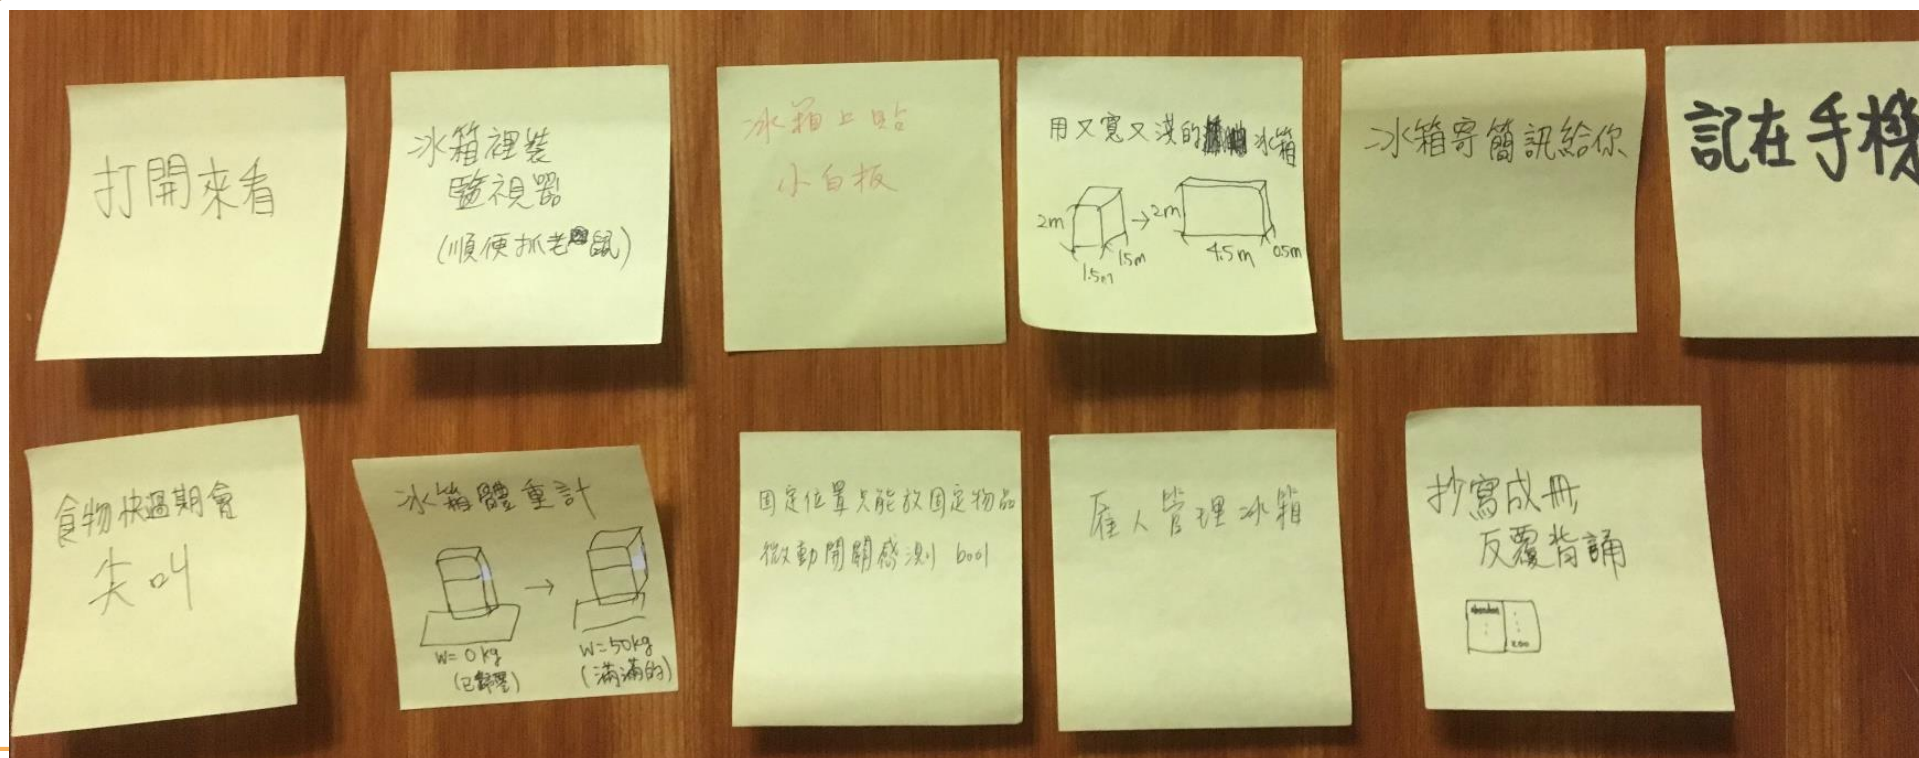 打開來看
冰箱裡裝
監視器
(順便抓老鼠)
冰箱上貼
小白板
用又寬又淺的冰箱
2m
1.5m
1.5m
2m
4.5m
0.5m
冰箱寄簡訊給你
記在手機
食物快過期會
尖叫
冰箱體重計
W=0kg
(已歸零)
W=50kg
(滿滿的)
固定位置只能放固定物品
微動開關感測 bool
雇人管理冰箱
抄寫成冊
反覆背誦